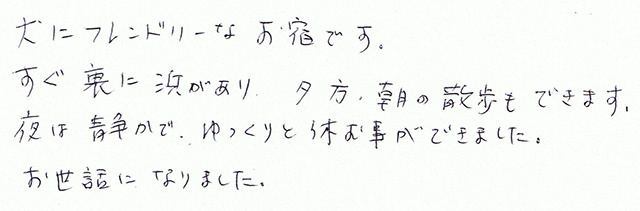 犬にフレンドリーなお宿です。
すぐ裏に浜があり、夕方、朝の散歩もできます。
夜は静かで、ゆっくりと休む事ができました。
お世話になりました。